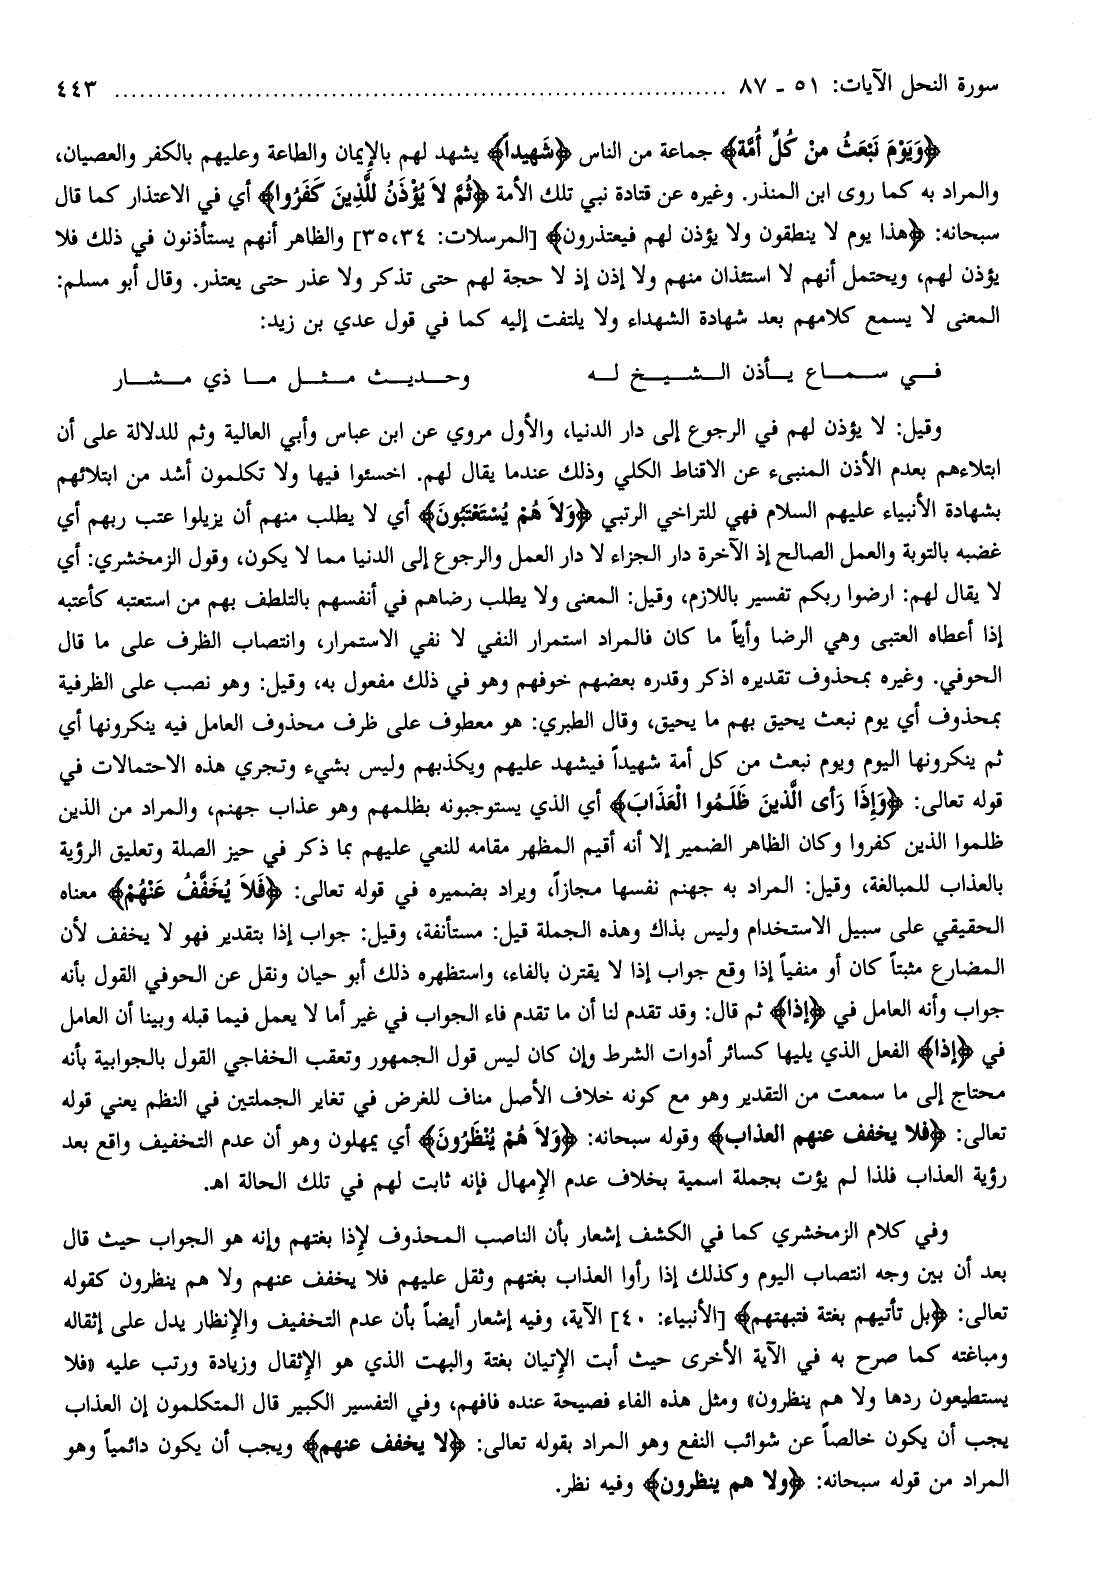 سورة النحل الآيات: ٥١ ـ ٨٧ ........................................................................ ٤٤٣
﴿وَيَوْمَ نَبْعَثُ مِنْ كُلِّ أُمَّة﴾ جماعة من الناس ﴿شَهِيداً﴾ يشهد لهم بالإيمان والطاعة وعليهم بالكفر والعصيان،
والمراد به كما روى ابن المنذر. وغيره عن قتادة نبي تلك الأمة ﴿ثُمَّ لاَ يُؤْذَنُ للَّذِينَ كَفَرُوا﴾ أي في الاعتذار كما قال
سبحانه: ﴿هذا يوم لا ينطقون ولا يؤذن لهم فيعتذرون﴾ [المرسلات: ٣٤،٣٥] والظاهر أنهم يستأذنون في ذلك فلا
يؤذن لهم، ويحتمل أنهم لا استئذان منهم ولا إذن إذ لا حجة لهم حتى تذكر ولا عذر حتى يعتذر. وقال أبو مسلم:
المعنى لا يسمع كلامهم بعد شهادة الشهداء ولا يلتفت إليه كما في قول عدي بن زيد:
فـي سـمـاع يـأذن الـشـيـخ لـه وحـديـث مـثـل مـا ذي مـشـار
وقيل: لا يؤذن لهم في الرجوع إلى دار الدنيا، والأول مروي عن ابن عباس وأبي العالية وثم للدلالة على أن
ابتلاءهم بعدم الأذن المنبىء عن الاقناط الكلي وذلك عندما يقال لهم. اخسئوا فيها ولا تكلمون أشد من ابتلائهم
بشهادة الأنبياء عليهم السلام فهي للتراخي الرتبي ﴿وَلاَ هُمْ يُسْتَعْتَبُونَ﴾ أي لا يطلب منهم أن يزيلوا عتب ربهم أي
غضبه بالتوبة والعمل الصالح إذ الآخرة دار الجزاء لا دار العمل والرجوع إلى الدنيا مما لا يكون، وقول الزمخشري: أي
لا يقال لهم: ارضوا ربكم تفسير باللازم، وقيل: المعنى ولا يطلب رضاهم في أنفسهم بالتلطف بهم من استعتبه كأعتبه
إذا أعطاه العتبى وهي الرضا وأياً ما كان فالمراد استمرار النفي لا نفي الاستمرار، وانتصاب الظرف على ما قال
الحوفي. وغيره بمحذوف تقديره اذكر وقدره بعضهم خوفهم وهو في ذلك مفعول به، وقيل: وهو نصب على الظرفية
بمحذوف أي يوم نبعث يحيق بهم ما يحيق، وقال الطبري: هو معطوف على ظرف محذوف العامل فيه ينكرونها أي
ثم ينكرونها اليوم ويوم نبعث من كل أمة شهيداً فيشهد عليهم ويكذبهم وليس بشيء وتجري هذه الاحتمالات في
قوله تعالى: ﴿وَإِذَا رَأى الَّذينَ ظَلَمُوا الْعَذَابَ﴾ أي الذي يستوجبونه بظلمهم وهو عذاب جهنم، والمراد من الذين
ظلموا الذين كفروا وكان الظاهر الضمير إلا أنه أقيم المظهر مقامه للنعي عليهم بما ذكر في حيز الصلة وتعليق الرؤية
بالعذاب للمبالغة، وقيل: المراد به جهنم نفسها مجازاً، ويراد بضميره في قوله تعالى: ﴿فَلاَ يُخَفَّفُ عَنْهُمْ﴾ معناه
الحقيقي على سبيل الاستخدام وليس بذاك وهذه الجملة قيل: مستأنفة، وقيل: جواب إذا بتقدير فهو لا يخفف لأن
المضارع مثبتاً كان أو منفياً إذا وقع جواب إذا لا يقترن بالفاء، واستظهره ذلك أبو حيان ونقل عن الحوفي القول بأنه
جواب وأنه العامل في ﴿إذا﴾ ثم قال: وقد تقدم لنا أن ما تقدم فاء الجواب في غير أما لا يعمل فيما قبله وبينا أن العامل
في ﴿إذا﴾ الفعل الذي يليها كسائر أدوات الشرط وإن كان ليس قول الجمهور وتعقب الخفاجي القول بالجوابية بأنه
محتاج إلى ما سمعت من التقدير وهو مع كونه خلاف الأصل مناف للغرض في تغاير الجملتين في النظم يعني قوله
تعالى: ﴿فلا يخفف عنهم العذاب﴾ وقوله سبحانه: ﴿وَلاَ هُمْ يُنْظَرُونَ﴾ أي يمهلون وهو أن عدم التخفيف واقع بعد
رؤية العذاب فلذا لم يؤت بجملة اسمية بخلاف عدم الإمهال فإنه ثابت لهم في تلك الحالة اهـ.
وفي كلام الزمخشري كما في الكشف إشعار بأن الناصب المحذوف لإذا بغتهم وإنه هو الجواب حيث قال
بعد أن بين وجه انتصاب اليوم وكذلك إذا رأوا العذاب بغتهم وثقل عليهم فلا يخفف عنهم ولا هم ينظرون كقوله
تعالى: ﴿بل تأتيهم بغتة فتبهتهم﴾ [الأنبياء: ٤٠] الآية، وفيه إشعار أيضاً بأن عدم التخفيف والإنظار يدل على إثقاله
ومباغته كما صرح به في الآية الأخرى حيث أبت الإتيان بغتة والبهت الذي هو الإثقال وزيادة ورتب عليه «فلا
يستطيعون ردها ولا هم ينظرون» ومثل هذه الفاء فصيحة عنده فافهم، وفي التفسير الكبير قال المتكلمون إن العذاب
يجب أن يكون خالصاً عن شوائب النفع وهو المراد بقوله تعالى: ﴿لا يخفف عنهم﴾ ويجب أن يكون دائمياً وهو
المراد من قوله سبحانه: ﴿ولا هم ينظرون﴾ وفيه نظر.